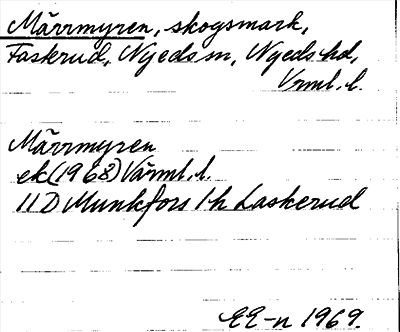 Märrmyren, skogsmark,
Faskerud, Nyeds sn, Nyeds hd,
Vrml. l.
Märrmyren
ek (1968) Värml. l.
11D Munkfors 1 h Laskerud
EE-n 1969.